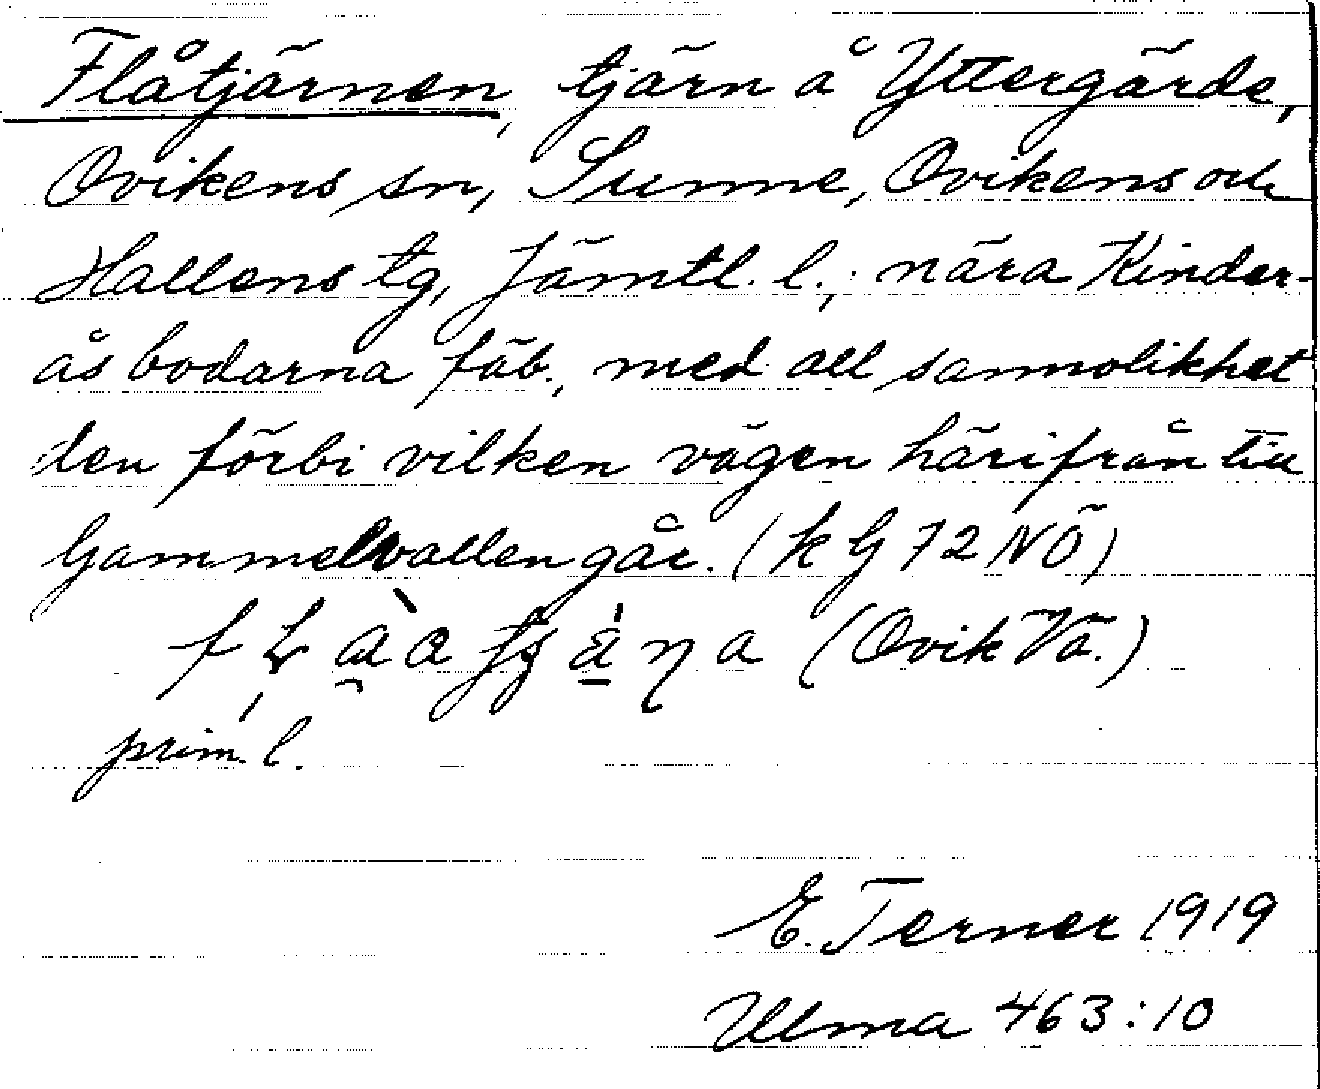 Flåtjärnen, tjärn å Yttergärde,
Ovikens sn, Sunne, Ovikens och
Hallens tg, Jämtl. l.; nära Kinder-
åsbodarna fäb., med all sannolikhet
den förbi vilken vägen härifrån till
Gammelvallen går. (k G 72 NÖ)
(Ovik Vä.)
prim. l.
E. Terner 1919
Ulma 463:10